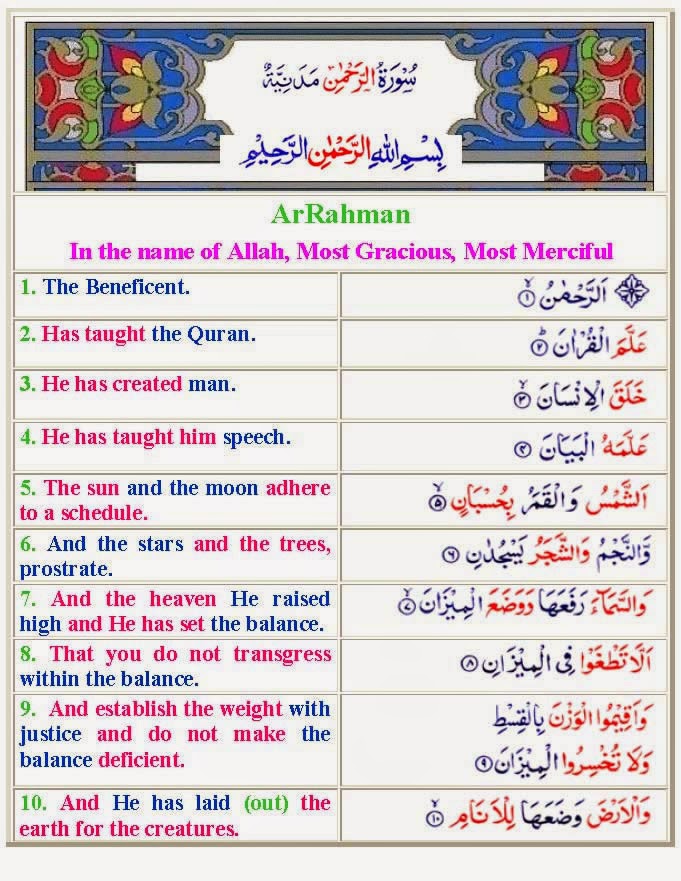 سُوْرَةُ الرَّحْمٰنِ مَدَنِيَّةٌ
بِسْمِ اللّٰهِ الرَّحْمٰنِ الرَّحِيْمِ
ArRahman
In the name of Allah, Most Gracious, Most Merciful
1. The Beneficent.
اَلرَّحْمٰنُ ۙ﴿۱﴾
2. Has taught the Quran.
عَلَّمَ الْقُرْاٰنَ ؕ﴿۲﴾
3. He has created man.
خَلَقَ الْاِنْسَانَ ۙ﴿۳﴾
4. He has taught him speech.
عَلَّمَهُ الْبَيَانَ ﴿۴﴾
5. The sun and the moon adhere
to a schedule.
اَلشَّمْسُ وَالْقَمَرُ بِحُسْبَانٍ ۙ﴿۵﴾
6. And the stars and the trees,
prostrate.
وَّالنَّجْمُ وَالشَّجَرُ يَسْجُدٰنِ ﴿۶﴾
7. And the heaven He raised
high and He has set the balance.
وَالسَّمَآءَ رَفَعَهَا وَوَضَعَ الْمِيْزَانَ ۙ﴿۷﴾
8. That you do not transgress
within the balance.
اَلَّا تَطْغَوْا فِى الْمِيْزَانِ ﴿۸﴾
9. And establish the weight with
justice and do not make the
balance deficient.
وَاَقِيْمُوا الْوَزْنَ بِالْقِسْطِ
وَلَا تُخْسِرُوا الْمِيْزَانَ ﴿۹﴾
10. And He has laid (out) the
earth for the creatures.
وَالْاَرْضَ وَضَعَهَا لِلْاَنَامِ ۙ﴿۱۰﴾